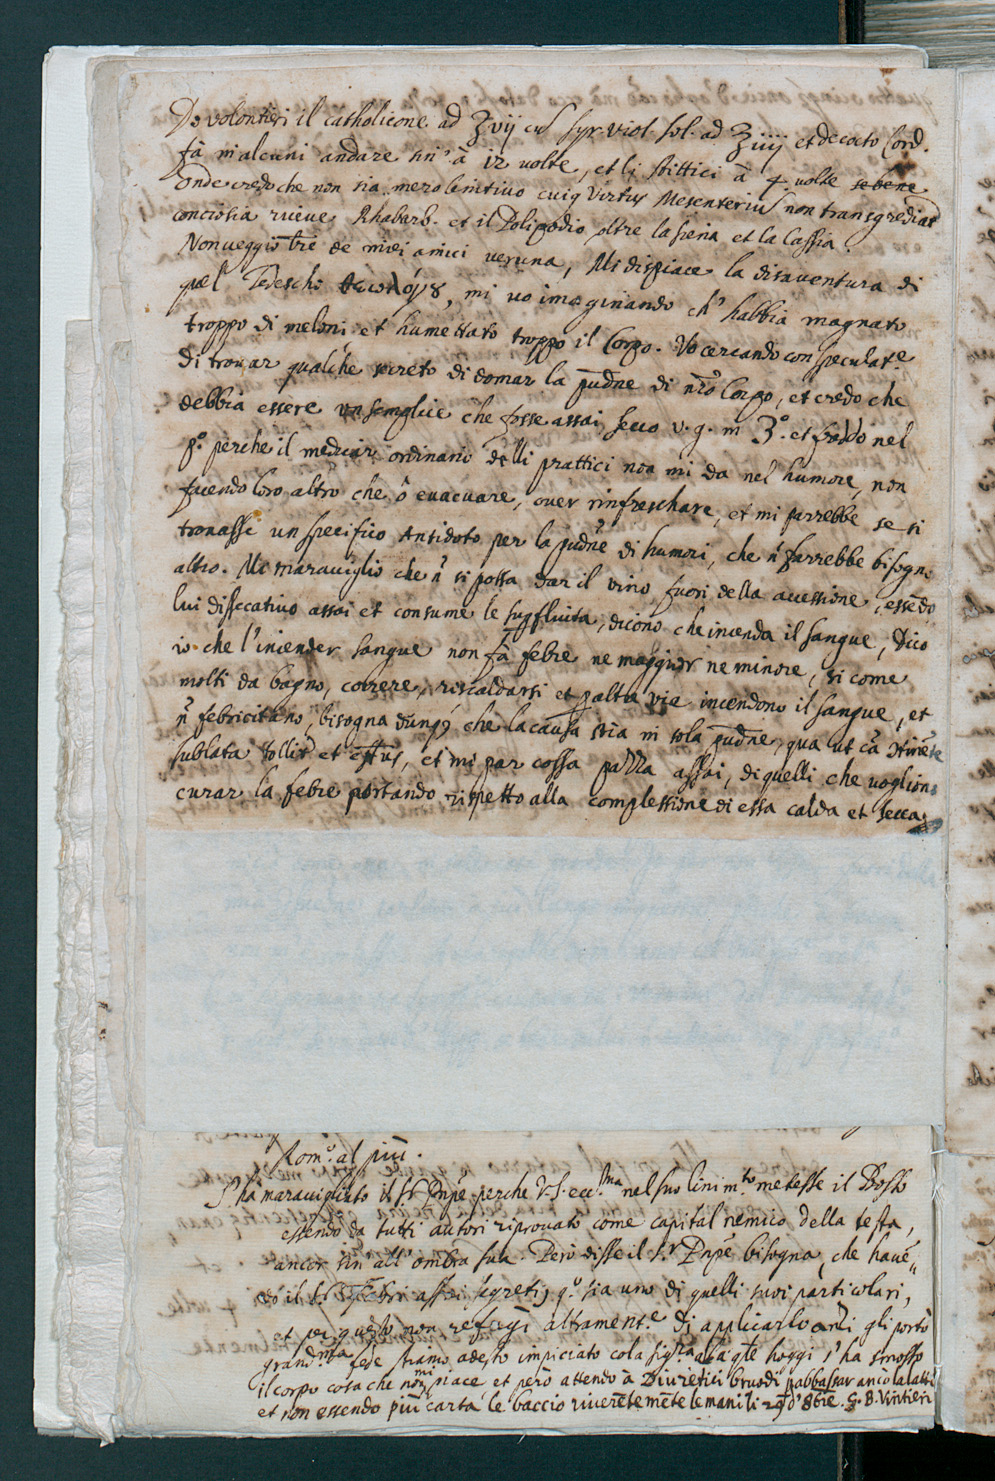 Do volontieri il catholicone ad ʒvij cū syr. viol. sol. ad ʒiiij et decocto Cord.
fà in alcuni andare sin' à 12 volte, et li stittici à 4 volte se bene
onde credo che non sia mero lenitivo cuiq virtus Mesenteriū non transgrediat
conciosia riceve Rhabarb. et il Polipodio oltre la siena et la Cassia.
Non veggio tre de miei amici veruna, Mi dispiace la disaventura di
quel Tedeschi θεολόγȣ, mi vo imaginando ch' habbia magnato
troppo di meloni et humettato troppo il Corpo. Vo cercando con speculat.e
di trovar qualche secreto di domar la pudne di nro Corpo, et credo che
debbia essere un semplice che fosse assai secco v.g. in 3.° et freddo nel
p.° perche il medicar ordinario delli prattici non mi da nel humore, non
facendo loro altro che ò evacuare, over rinfreschare, et mi parrebbe se si
trovasse un specifico Antidoto per la pudne di humori, che n̄ farrebbe bisogno
altro. Mi maraviglio che n̄ si possa dar il vino fuori della accessione, essedo
lui dissecativo assai et consume le supfluita, dicono che incenda il sangue, Dico
io che l'incender sangue non fà febre ne maggior ne minore, si come
molti da bagno, correre, riscaldarsi et p altra via incendono il sangue, et
n̄ febricitano, bisogna dunq che la causa stia in sola pudne, qua ut cā
sublata tollit et effus, et mi par cossa pazza assai, di quelli che voglion
curar la febre portando rispetto alla complessione di essa calda et secca
Rom.° al più.
S'ha maravigliato il Sr Pnpe perche V.S. ecc.ma nel suo linim.to metesse il Bosso
essendo da tutti autori riprovato come capital nemico della testa,
ancor sin all' ombra sua. Però disse il Sr Pnpe bisogna, che havē=
do il Sr assai segreti, q.° sia uno di quelli suoi particolari,
et per questo non refugi altrament.e di applicarlo anzi gli portò
grand.ma fede stiamo adesto impiciato cola sig.ra ala qle hoggi s'ha smosso
il corpo cosa che non mi piace et però attendo à Diuretici bruodi p abbassar anco la
et non essendo più carta le baccio riverētemēte le mani li 29 d' 8bre. G. B. Vintieri